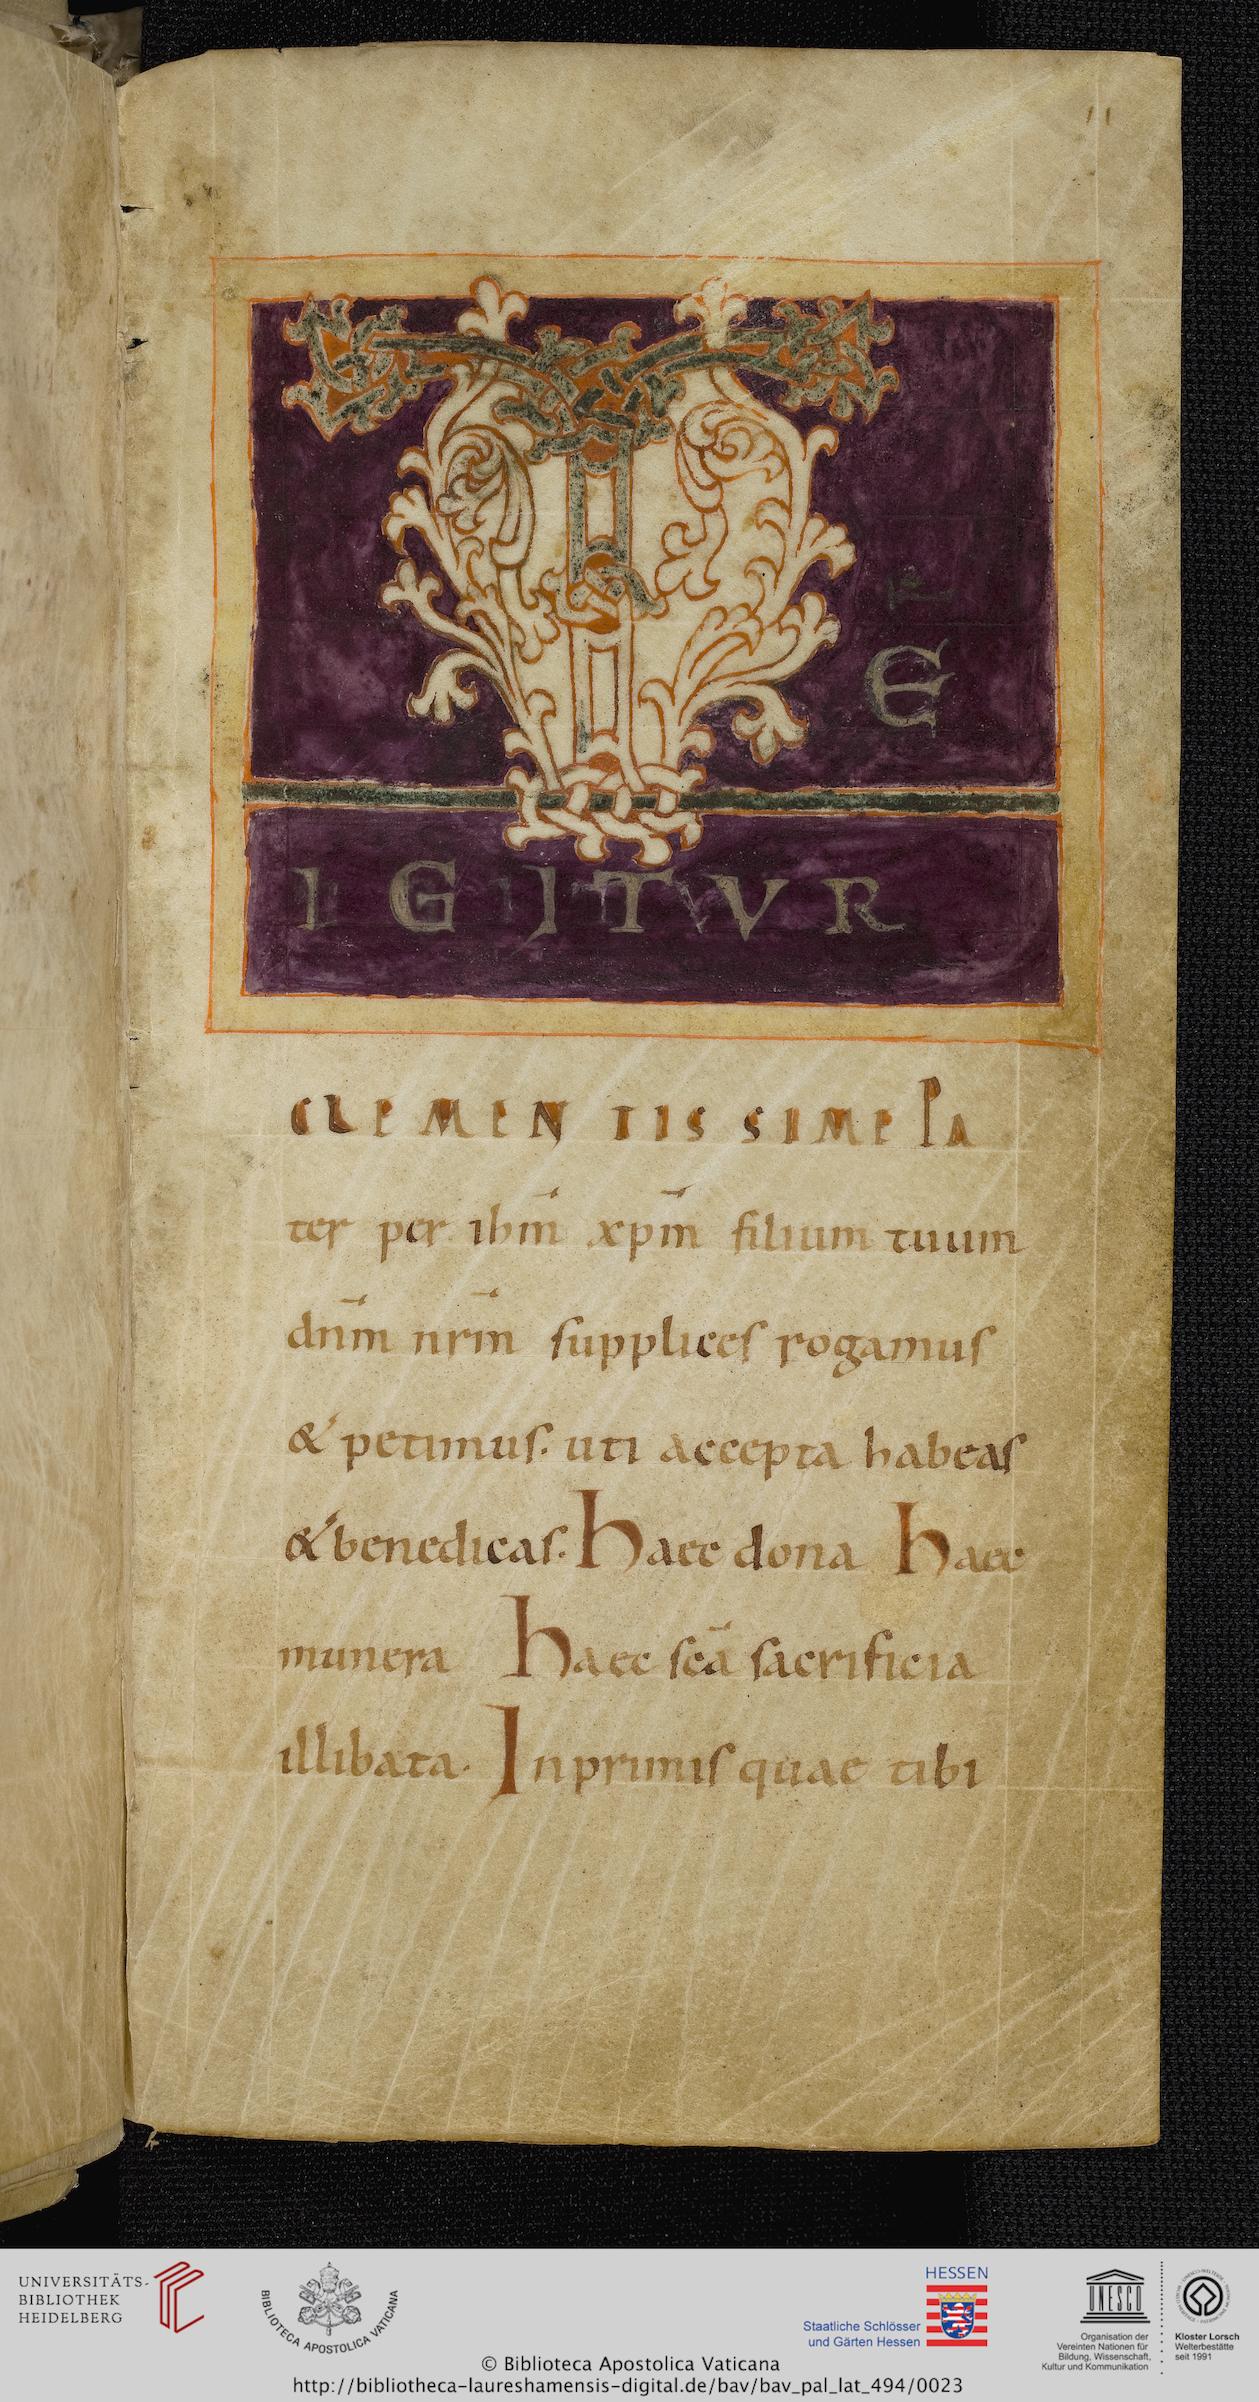 11
TE
IGITVR
CLEMENTISSIME PA
ter per ihm̄ xpm̄ filium tuum
dn̄m nr̄m supplices rogamus
& petimus. uti accepta habeas
& benedicas. Haec dona Haec
munera Haec sc̄a sacrificia
illibata. Inprimis quae tibi
UNIVERSITÄTS-
BIBLIOTHEK
HEIDELBERG
BIBLIOTECA APOSTOLICA VATICANA
HESSEN
Staatliche Schlösser
und Gärten Hessen
UNESCO
Organisation der
Vereinten Nationen für
Bildung, Wissenschaft,
Kultur und Kommunikation
Kloster Lorsch
Welterbestätte
seit 1991
© Biblioteca Apostolica Vaticana
http://bibliotheca-laureshamensis-digital.de/bav/bav_pal_lat_494/0023